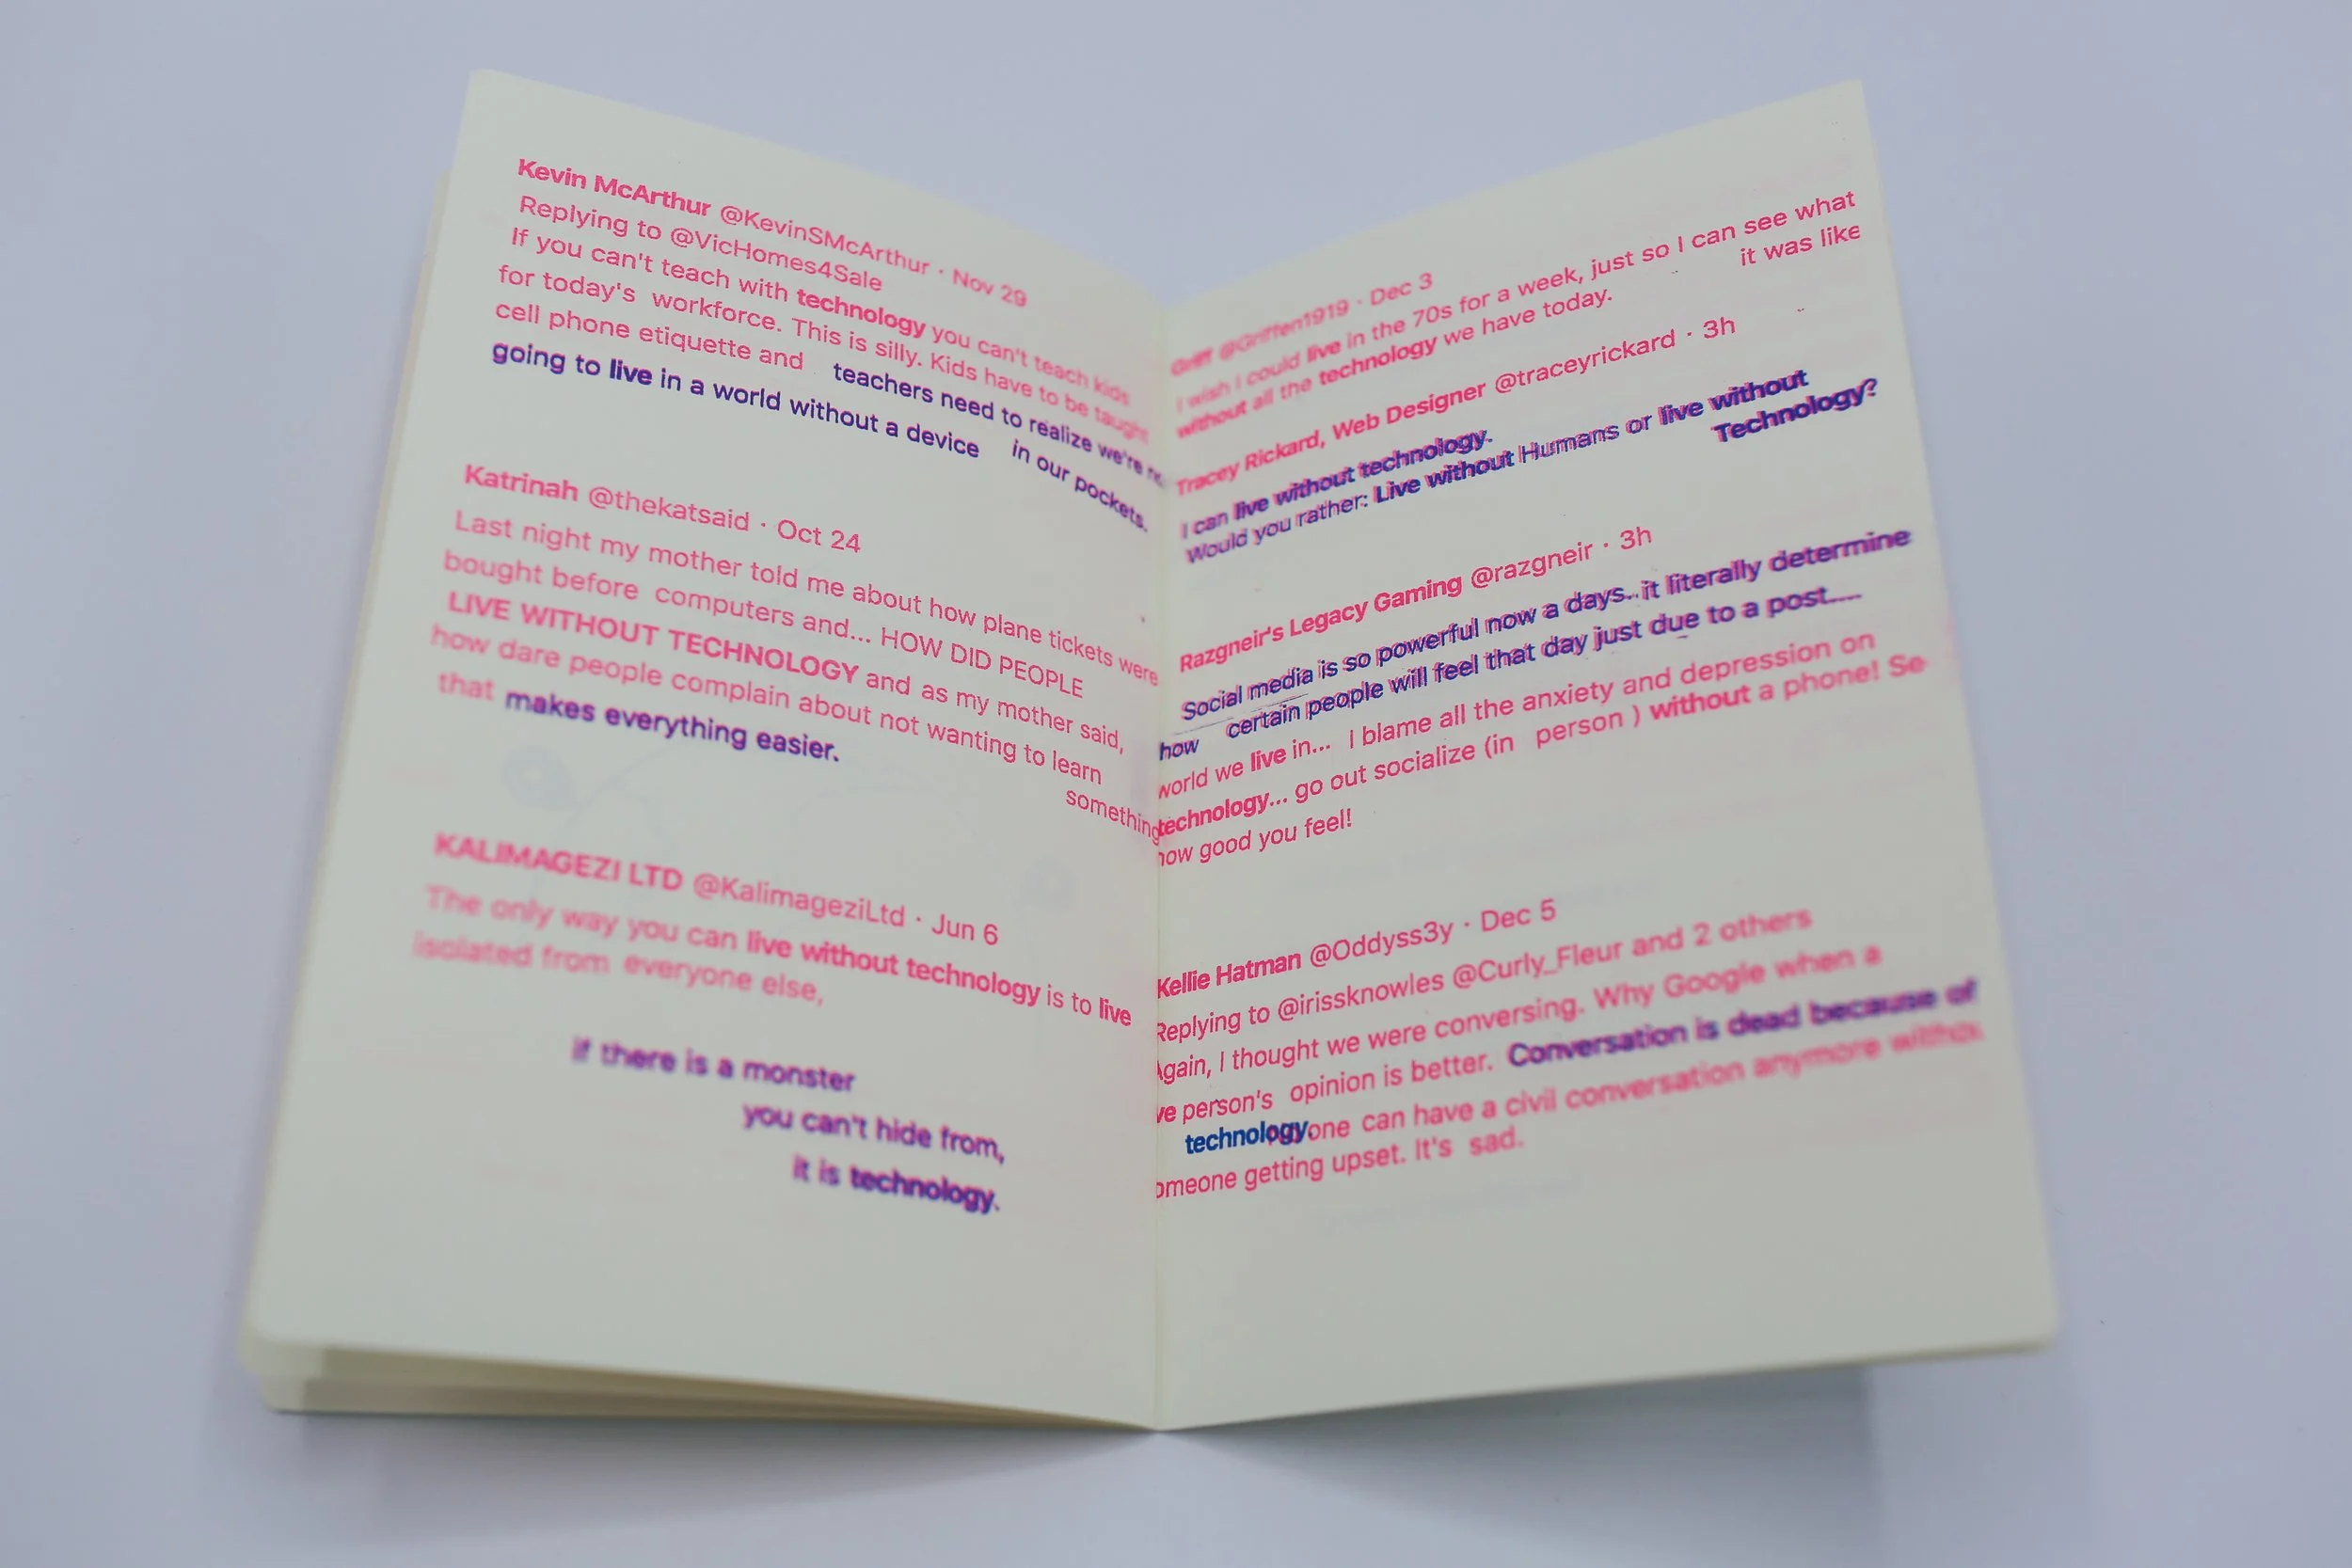 Kevin McArthur @KevinSMcArthur · Nov 29
Replying to @VicHomes4Sale
If you can't teach with technology you can't teach kids
for today's workforce. This is silly. Kids have to be taught
cell phone etiquette and teachers need to realize we're
going to live in a world without a device in our pockets.
Katrinah @thekatsaid · Oct 24
Last night my mother told me about how plane tickets were
bought before computers and... HOW DID PEOPLE
LIVE WITHOUT TECHNOLOGY and as my mother said,
how dare people complain about not wanting to learn
something
that makes everything easier.
KALIMAGEZI LTD @KalimageziLtd · Jun 6
The only way you can live without technology is to live
isolated from everyone else,
if there is a monster
you can't hide from,
it is technology.
Griff @Griffen1919 · Dec 3
I wish I could live in the 70s for a week, just so I can see what
it was like
without all the technology we have today.
Tracey Rickard, Web Designer @traceyrickard · 3h
I can live without technology.
Would you rather: Live without Humans or live without
Technology?
Razgneir's Legacy Gaming @razgneir · 3h
Social media is so powerful now a days.. it literally determine
how certain people will feel that day just due to a post....
world we live in... I blame all the anxiety and depression on
technology... go out socialize (in person ) without a phone! Se
how good you feel!
Kellie Hatman @Oddyss3y · Dec 5
Replying to @irissknowles @Curly_Fleur and 2 others
Again, I thought we were conversing. Why Google when a
ve person's opinion is better. Conversation is dead because of
technology. one can have a civil conversation anymore
omeone getting upset. It's sad.